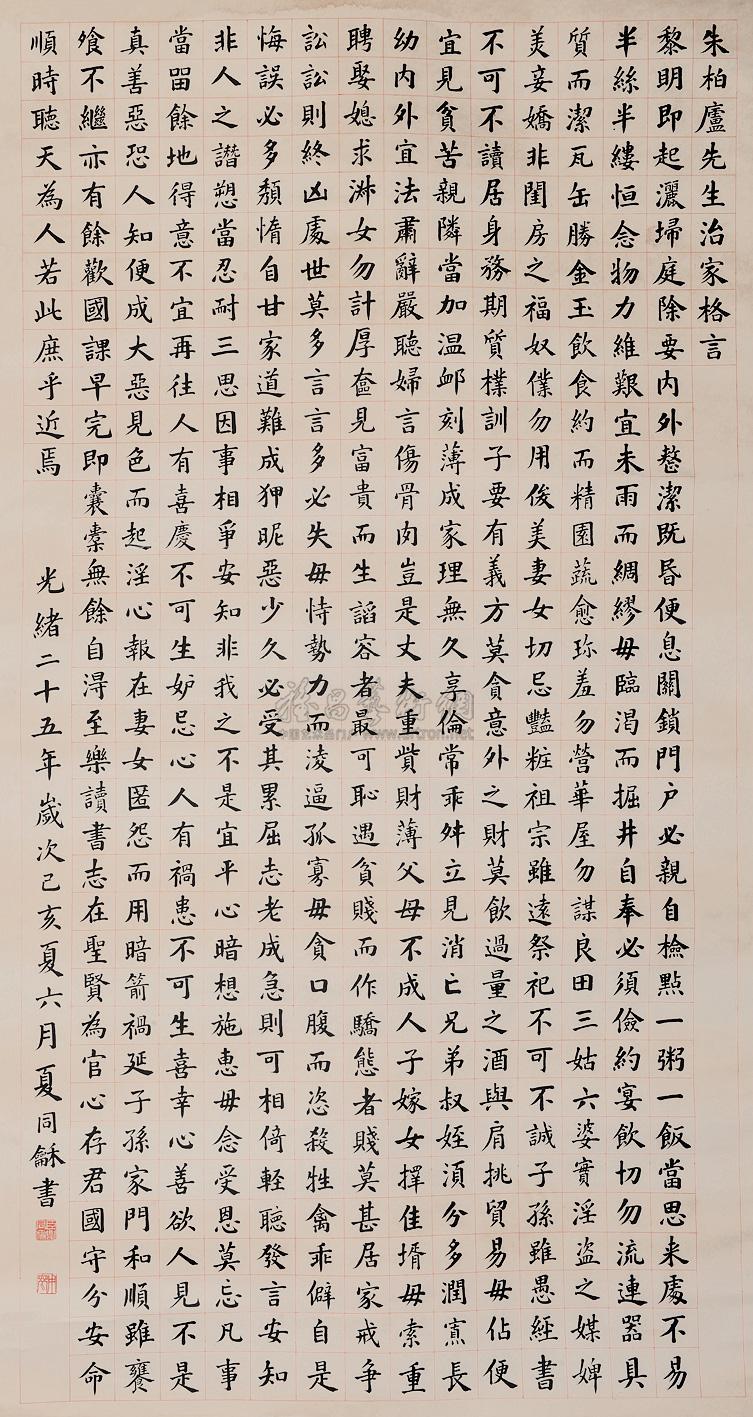 朱柏廬先生治家格言
黎明即起灑埽庭除要内外整潔既昬便息關鎖門户必親自檢點一粥一飯當思来處不易
半絲半縷恒念物力維艱宜未雨而綢繆毋臨渴而掘井自奉必須儉約宴飲切勿流連器具
質而潔瓦缶勝金玉飲食約而精園蔬愈珎羞勿營華屋勿謀良田三姑六婆實淫盗之媒婢
美妾嬌非閨房之福奴僕勿用俊美妻女切忌豔粧祖宗雖遠祭祀不可不誠子孫雖愚經書
不可不讀居身務期質樸訓子要有義方莫貪意外之財莫飲過量之酒與肩挑貿易毋佔便
宜見貧苦親隣當加温卹刻薄成家理無久享倫常乖舛立見消亡兄弟叔姪須分多潤寡長
幼内外宜法肅辭嚴聽婦言傷骨肉豈是丈夫重貲財薄父母不成人子嫁女擇佳壻毋索重
聘娶媳求淑女勿計厚奩見富貴而生諂容者最可恥遇貧賤而作驕態者賤莫甚居家戒争
訟訟則終凶處世莫多言言多必失毋恃勢力而淩逼孤寡毋貪口腹而恣殺牲禽乖僻自是
悔誤必多頽惰自甘家道難成狎昵惡少久必受其累屈志老成急則可相倚輕聽發言安知
非人之譖愬當忍耐三思因事相爭安知非我之不是宜平心暗想施惠毋念受恩莫忘凡事
當畱餘地得意不宜再往人有喜慶不可生妒忌心人有禍患不可生喜幸心善欲人見不是
真善惡恐人知便成大惡見色而起淫心報在妻女匿怨而用暗箭禍延子孫家門和順雖饔
飧不繼亦有餘歡國課早完即囊橐無餘自淂至樂讀書志在聖賢為官心存君國守分安命
順時聽天為人若此庶乎近焉
光緒二十五年歲次己亥夏六月夏同龢書